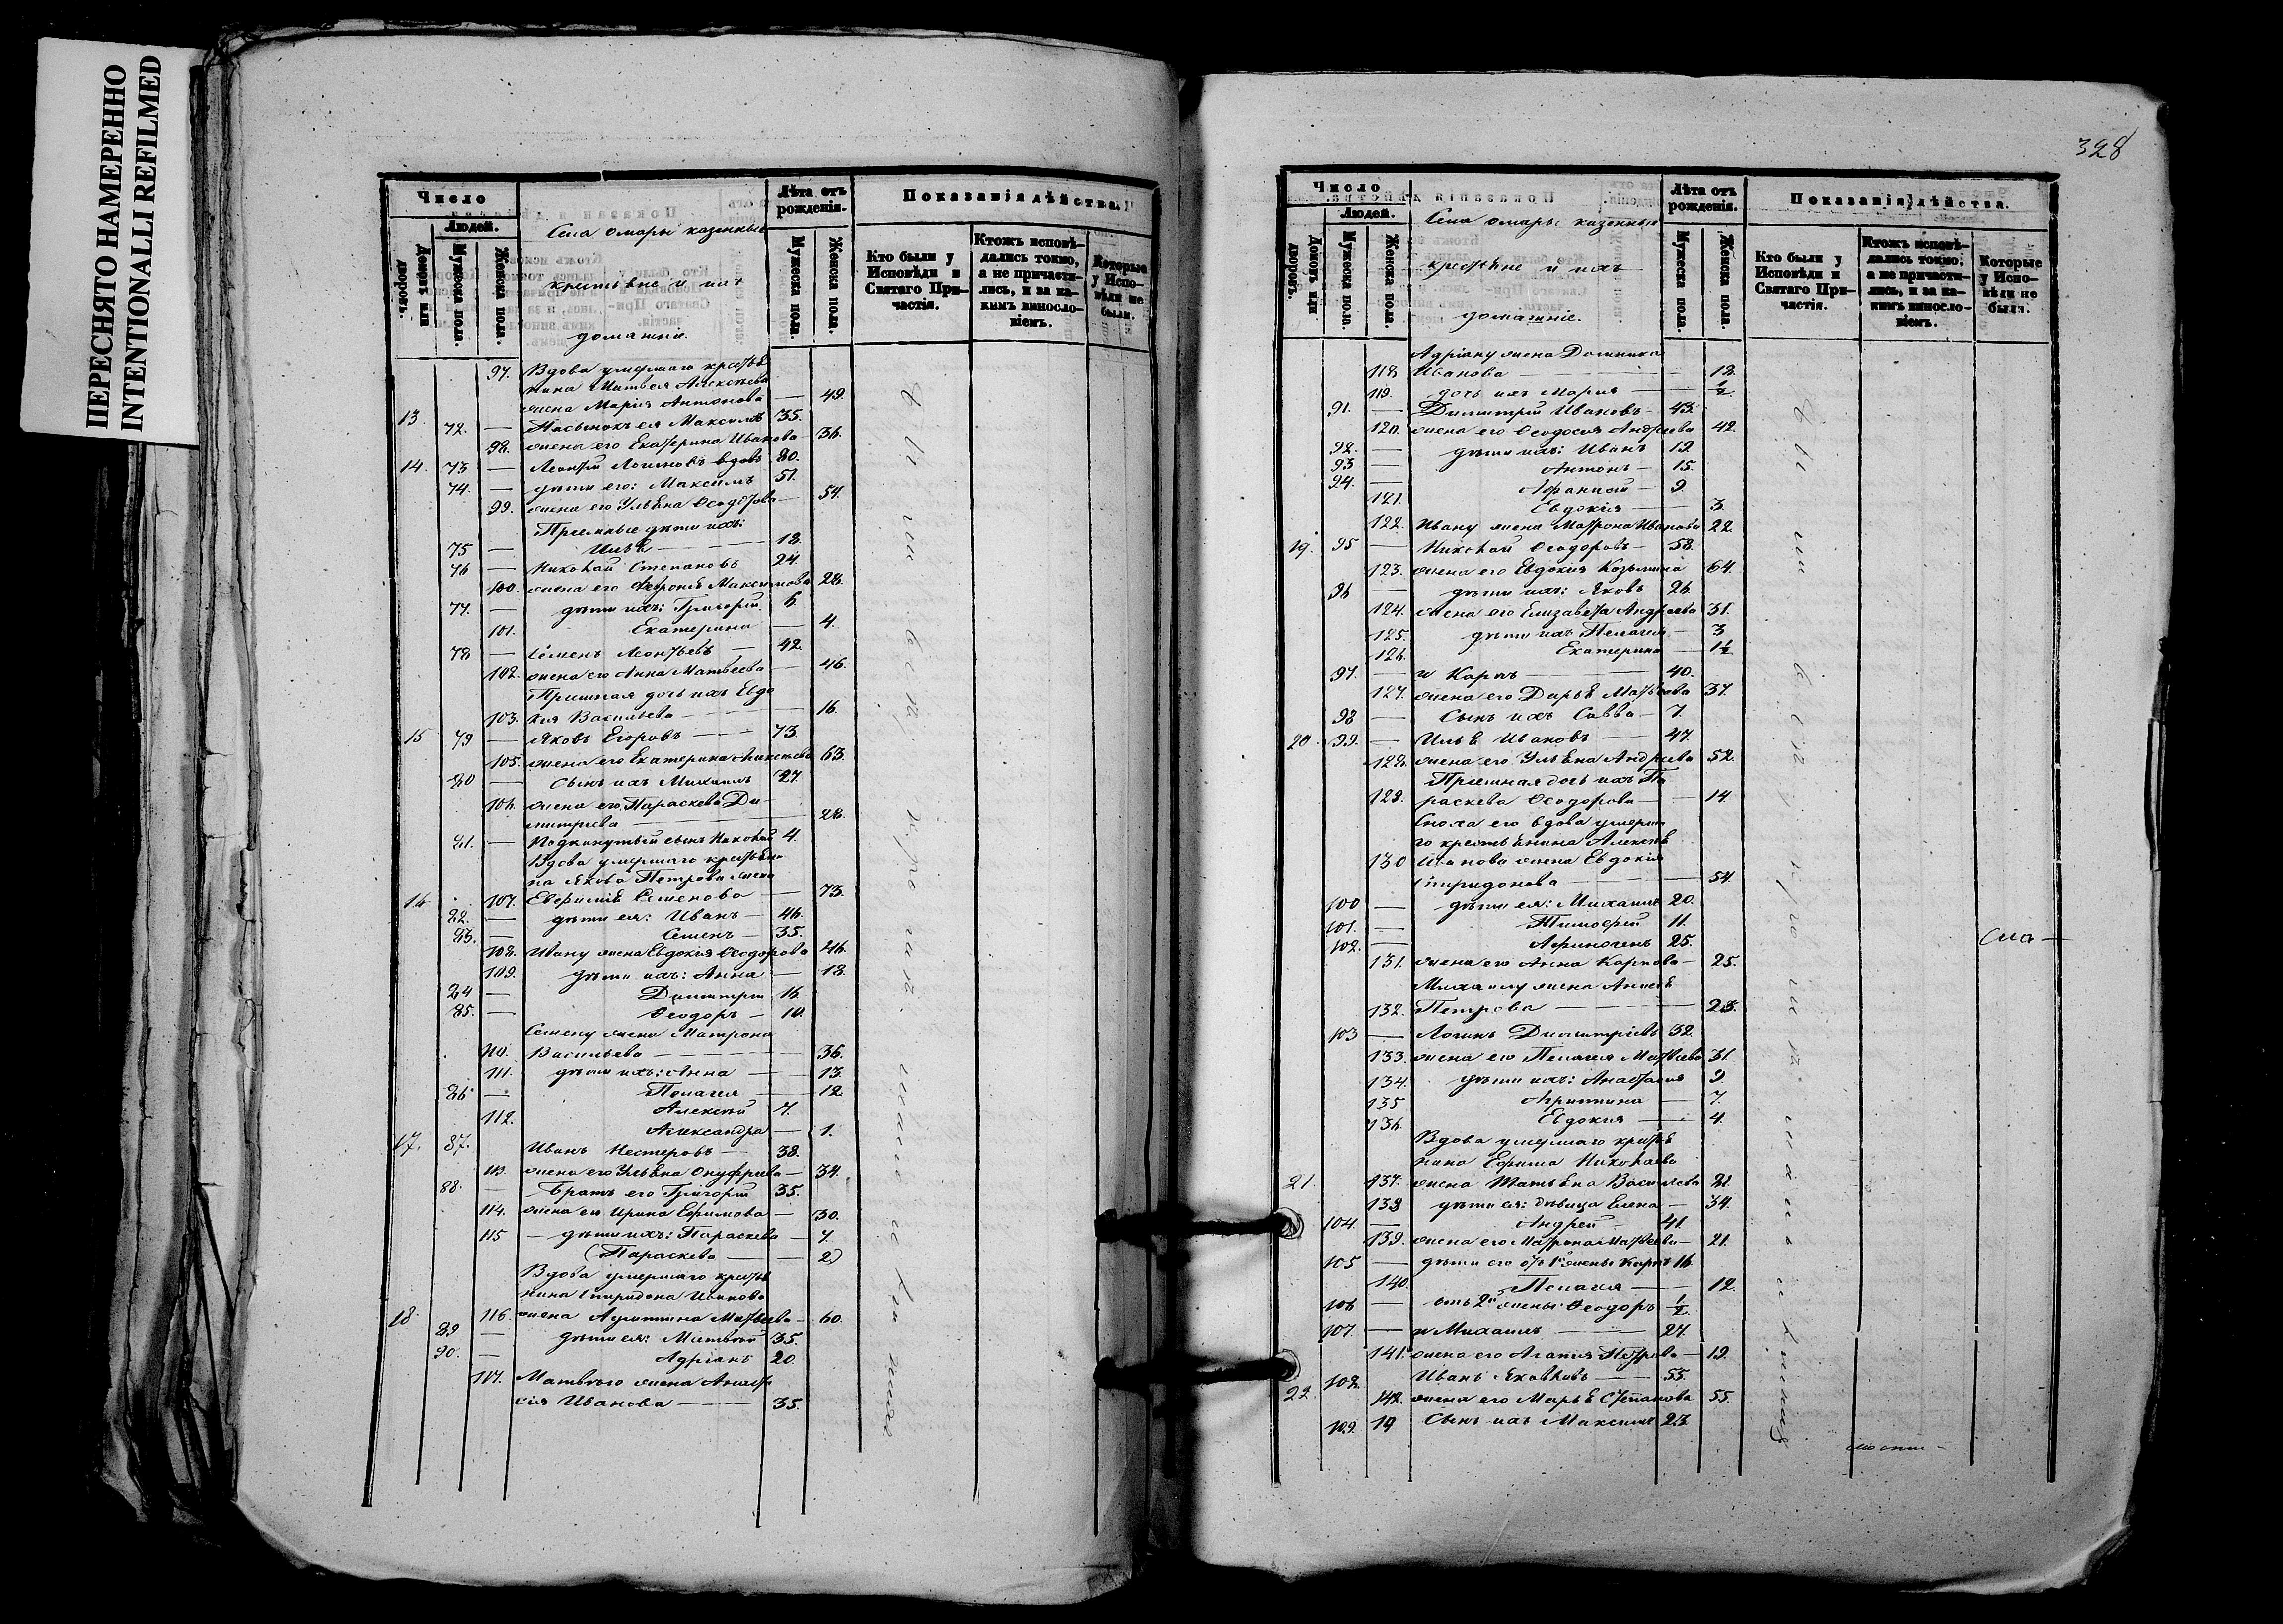 ПЕРЕСНЯТО НАМЕРЕННО
INTENTIONALLI REFILMED
Число
Людей.
Домовъ или дворовъ.
Мужеска пола.
Женска пола.
Села Омары казенные
крестьяне и ихъ
домашніе.
Лѣта отъ рожденія.
Мужеска пола.
Женска пола.
Показанія дѣйства.
Кто были у Исповѣди и Святаго Причастія.
Ктожъ исповѣдались токмо, а не причастились, и за какимъ винословіемъ.
Которые у Исповѣди не были.
97. Вдова умершаго крестья
нина Матвея Алексѣева
13 жена Марія Антонова — 49.
72. — Пасынокъ ея Максимъ 35.
98. жена его Екатерина Иванова — 36.
14. 73 — Леонтій Логиновъ вдовъ 80.
74. — дѣти его: Максимъ 51.
99. жена его Ульяна Ѳеодорова — 54.
Приемные дѣти ихъ:
75 — Илья — 18.
76 — Николай Степановъ 24.
100. жена его Февронья Максимова 28.
77. — дѣти ихъ: Григорій 6.
101. Екатерина — 4.
78 — Семенъ Леонтьевъ — 42.
102. жена его Анна Матвеева — 46.
Приемная дочь ихъ Евдо
103. кия Васильева — 16.
15 79 — Яковъ Егоровъ — 73.
105. жена его Екатерина Алексѣева 63.
80 — Сынъ ихъ Михаилъ 27.
106. жена его Параскева Ди-
митриева — 28.
81. — Подкинутый сынъ Николай 4.
Вдова умершаго крестьяни
на Якова Петрова жена
16 107. Евфимія Семенова — 73.
82. — дѣти ея: Иванъ — 46.
83. — Семенъ — 35.
108. Ивану жена Евдокия Ѳеодорова 46.
109. дѣти ихъ: Анна — 18.
84 — Димитрій 16.
85. — Ѳеодоръ — 10.
Семену жена Матрона
110. Васильева — 36.
111. дѣти ихъ: Анна — 13.
86 — Пелагея — 12.
112. Алексѣй 7.
Александра — 1.
17. 87. Иванъ Нестеровъ — 38.
113. жена его Ульяна Онуфриева — 34.
88. — Братъ его Григорій 35.
114. жена его Ирина Ефимова — 30.
115 — дѣти ихъ: Параскева — 7.
(Параскева — 2)
Вдова умершаго крестья
нина Спиридона Иванова
18. 116. жена Агриппина Матвеева — 60.
89 — дѣти ея: Матвѣй 35.
90. — Адріанъ 20.
117. Матвѣю жена Анаста
сія Иванова — 35.
были у исповѣди и св. причастія
328
Число
Людей.
Домовъ или дворовъ.
Мужеска пола.
Женска пола.
Села Омары казенные
крестьяне и ихъ
домашніе.
Лѣта отъ рожденія.
Мужеска пола.
Женска пола.
Показанія дѣйства.
Кто были у Исповѣди и Святаго Причастія.
Ктожъ исповѣдались токмо, а не причастились, и за какимъ винословіемъ.
Которые у Исповѣди не были.
Адріану жена Домника
118. Иванова — 18.
119. дочь ихъ Мария — ½
91. — Димитрій Ивановъ — 43.
120. жена его Ѳеодосия Андреева 42.
92. — дѣти ихъ: Иванъ 19.
93 — Антонъ — 15.
94. — Афанасій — 9.
121. Евдокія — 3.
122. Ивану жена Матрона Иванова 22.
19. 95 — Николай Ѳеодоровъ — 58.
123. жена его Евдокия Козьмина 64.
96 — дѣти ихъ: Яковъ 26.
124. жена его Елизавета Андреева 31.
125. дѣти ихъ Пелагея — 3
126. Екатерина — 1½
97. — и Карпъ — 40.
127. жена его Дарья Матвеева 37.
98 — Сынъ ихъ Савва — 7.
20. 99. — Илья Ивановъ — 47.
128. жена его Ульяна Андреева 52.
Приемная дочь ихъ Па
129. раскева Ѳеодорова — 14.
Сноха его вдова умерша
го крестьянина Алексѣя
130 Иванова жена Евдокия
Спиридонова — 54.
100 — дѣти ея: Михаилъ 20.
101. — Тимофей 11.
102. — Афиногенъ 25.
131. жена его Анна Карпова — 25.
Михаилу жена Анисья
132. Петрова — 23.
103 — Логинъ Димитріевъ 32.
133. жена его Пелагея Матвеева 31.
134. дѣти ихъ: Анастасия 9.
135 Агриппина — 7.
136. Евдокия — 4.
Вдова умершаго крестья
нина Ефима Николаева
21. 137. жена Татьяна Васильева 81.
138 дѣти ея: дѣвица Елена — 34.
104. — Андрей — 41.
139. жена его Матрона Матвеева — 21.
105 — дѣти его отъ 1й жены Карпъ 16.
140. Пелагея — 12.
106 — отъ 2й жены Ѳеодоръ ½
107. — и Михаилъ — 24.
141. жена его Агапия Петрова — 19.
108. Иванъ Яковлевъ — 55.
22. 142. жена его Марья Степанова 55.
109. Сынъ ихъ Максимъ 23.